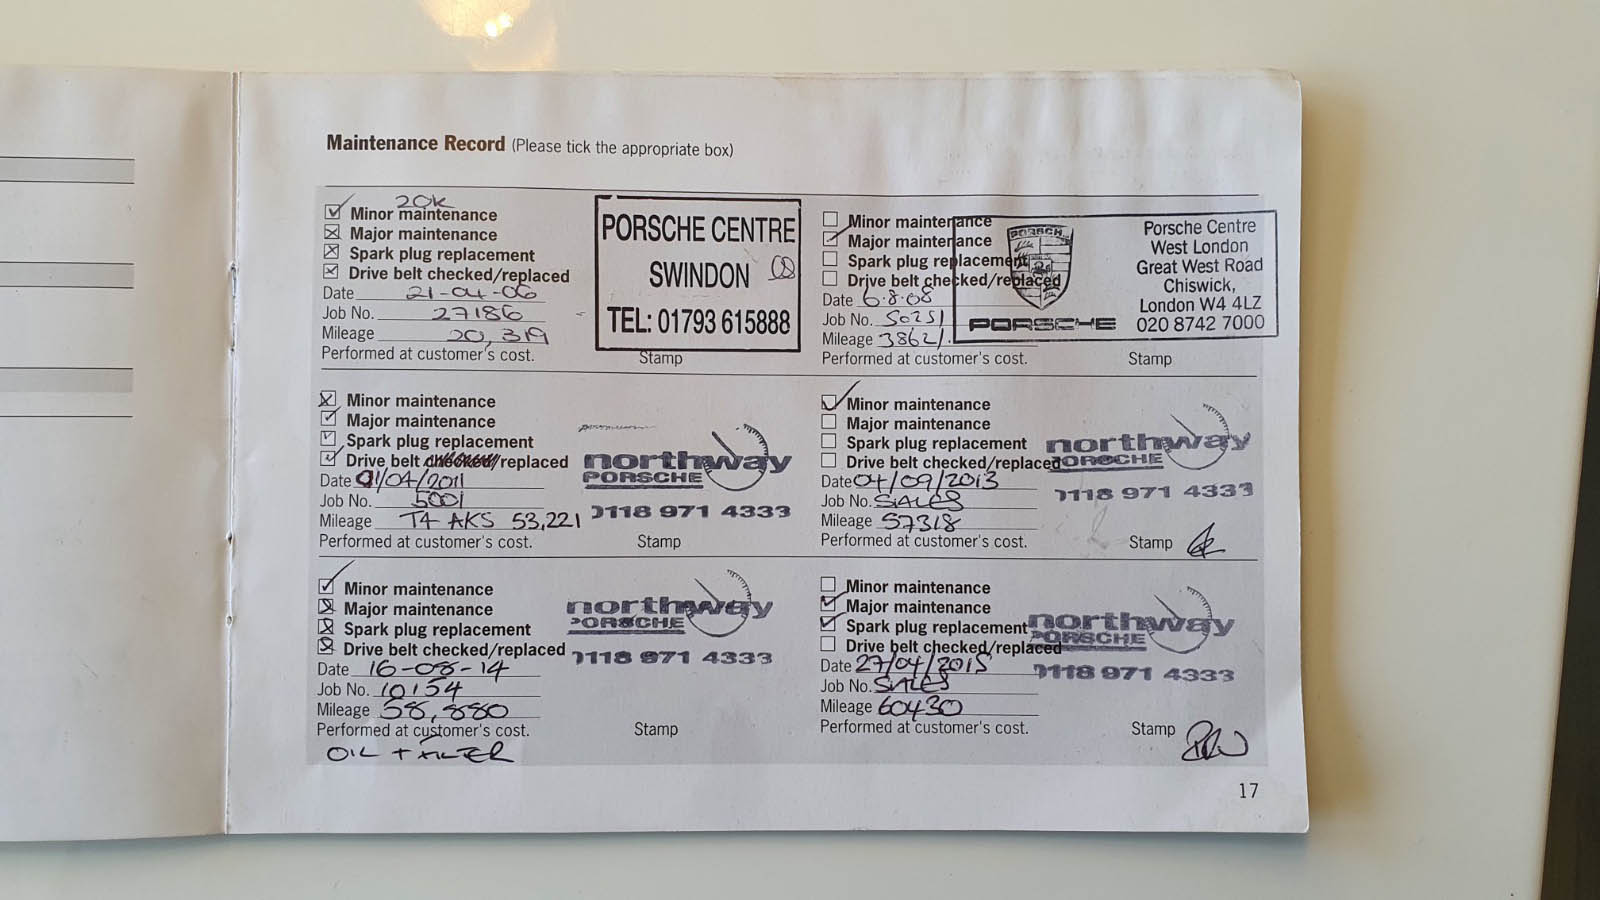 Maintenance Record (Please tick the appropriate box)
20K
Minor maintenance
Major maintenance
Spark plug replacement
Drive belt checked/replaced
Date 21-04-06
Job No. 27186
Mileage 20,319
Performed at customer's cost.
PORSCHE CENTRE
SWINDON 08
TEL: 01793 615888
Stamp
Minor maintenance
Major maintenance
Spark plug replacement
Drive belt checked/replaced
Date 6.8.08
Job No. 50251
Mileage 38621.
Performed at customer's cost.
PORSCHE
PORSCHE
Porsche Centre
West London
Great West Road
Chiswick,
London W4 4LZ
020 8742 7000
Stamp
Minor maintenance
Major maintenance
Spark plug replacement
Drive belt checked/replaced
Date 01/04/2011
Job No. 5001
Mileage T4 AKS 53,221
Performed at customer's cost.
northway
PORSCHE
0118 971 4333
Stamp
Minor maintenance
Major maintenance
Spark plug replacement
Drive belt checked/replaced
Date 04/09/2013
Job No. SALES
Mileage 57318
Performed at customer's cost.
northway
PORSCHE
0118 971 4333
Stamp
Minor maintenance
Major maintenance
Spark plug replacement
Drive belt checked/replaced
Date 16-08-14
Job No. 10154
Mileage 58,880
Performed at customer's cost.
OIL + FILTER
northway
PORSCHE
0118 971 4333
Stamp
Minor maintenance
Major maintenance
Spark plug replacement
Drive belt checked/replaced
Date 27/04/2015
Job No. SALES
Mileage 60430
Performed at customer's cost.
northway
PORSCHE
0118 971 4333
Stamp
17